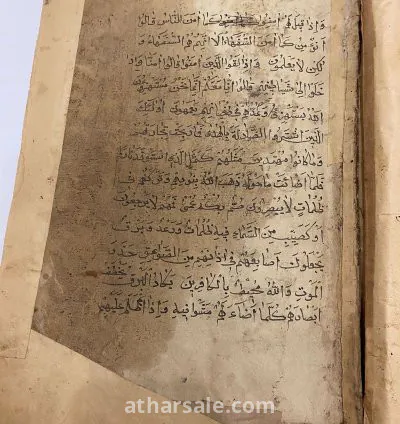 وَإِذَا قِيلَ لَهُمْ آمِنُوا كَمَا آمَنَ النَّاسُ قَالُوا
أَنُؤْمِنُ كَمَا آمَنَ السُّفَهَاءُ أَلَا إِنَّهُمْ هُمُ السُّفَهَاءُ وَ
لَكِنْ لَا يَعْلَمُونَ وَإِذَا لَقُوا الَّذِينَ آمَنُوا قَالُوا آمَنَّا وَإِذَا
خَلَوْا إِلَى شَيَاطِينِهِمْ قَالُوا إِنَّا مَعَكُمْ إِنَّمَا نَحْنُ مُسْتَهْزِئُونَ
اللَّهُ يَسْتَهْزِئُ بِهِمْ وَيَمُدُّهُمْ فِي طُغْيَانِهِمْ يَعْمَهُونَ أُولَئِكَ
الَّذِينَ اشْتَرَوُا الضَّلَالَةَ بِالْهُدَى فَمَا رَبِحَتْ تِجَارَتُهُمْ
وَمَا كَانُوا مُهْتَدِينَ مَثَلُهُمْ كَمَثَلِ الَّذِي اسْتَوْقَدَ نَارًا
فَلَمَّا أَضَاءَتْ مَا حَوْلَهُ ذَهَبَ اللَّهُ بِنُورِهِمْ وَتَرَكَهُمْ فِي
ظُلُمَاتٍ لَا يُبْصِرُونَ صُمٌّ بُكْمٌ عُمْيٌ فَهُمْ لَا يَرْجِعُونَ
أَوْ كَصَيِّبٍ مِنَ السَّمَاءِ فِيهِ ظُلُمَاتٌ وَرَعْدٌ وَبَرْقٌ
يَجْعَلُونَ أَصَابِعَهُمْ فِي آذَانِهِمْ مِنَ الصَّوَاعِقِ حَذَرَ
الْمَوْتِ وَاللَّهُ مُحِيطٌ بِالْكَافِرِينَ يَكَادُ الْبَرْقُ يَخْطَفُ
أَبْصَارَهُمْ كُلَّمَا أَضَاءَ لَهُمْ مَشَوْا فِيهِ وَإِذَا أَظْلَمَ عَلَيْهِمْ
atharsale.com